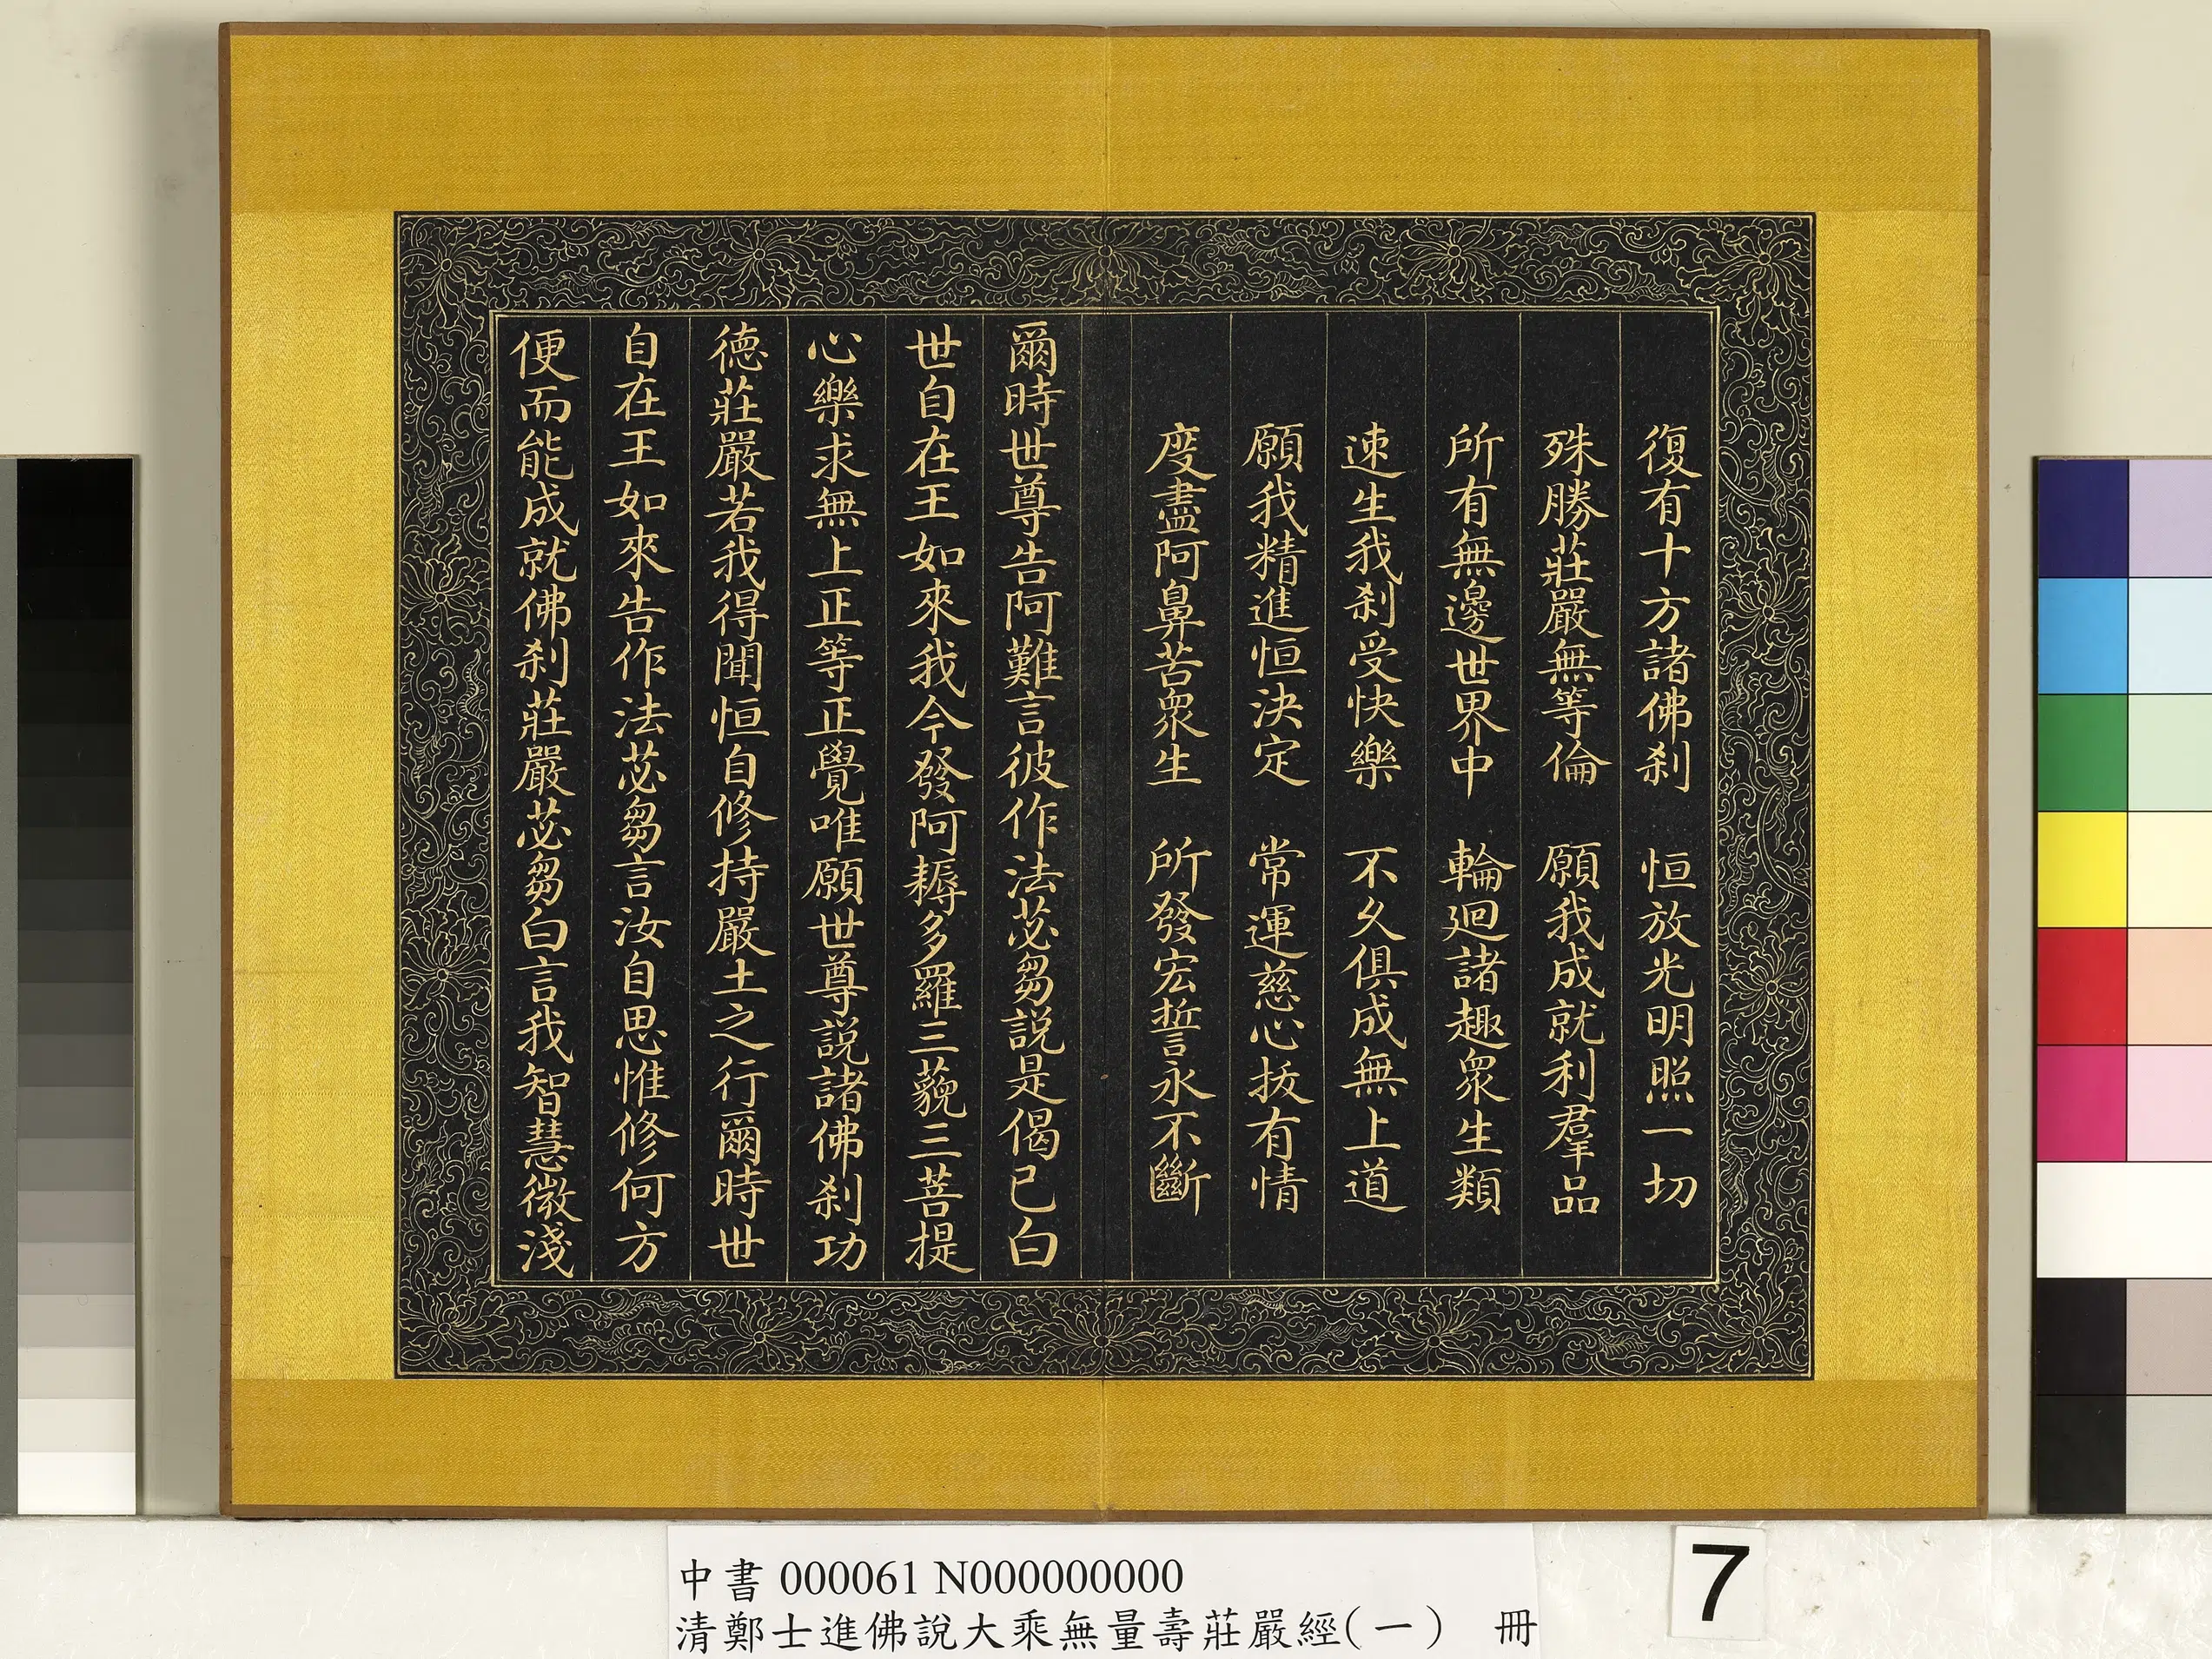 復有十方諸佛刹　恒放光明照一切
殊勝莊嚴無等倫　願我成就利羣品
所有無邊世界中　輪迴諸趣衆生類
速生我刹受快樂　不久俱成無上道
願我精進恒決定　常運慈心拔有情
度盡阿鼻苦衆生　所發宏誓永不斷
爾時世尊告阿難言彼作法苾芻説是偈已白
世自在王如來我今發阿耨多羅三藐三菩提
心樂求無上正等正覺唯願世尊説諸佛刹功
德莊嚴若我得聞恒自修持嚴土之行爾時世
自在王如來告作法苾芻言汝自思惟修何方
便而能成就佛刹莊嚴苾芻白言我智慧微淺
中書 000061 N000000000
清鄭士進佛說大乘無量壽莊嚴經(一)　冊
7